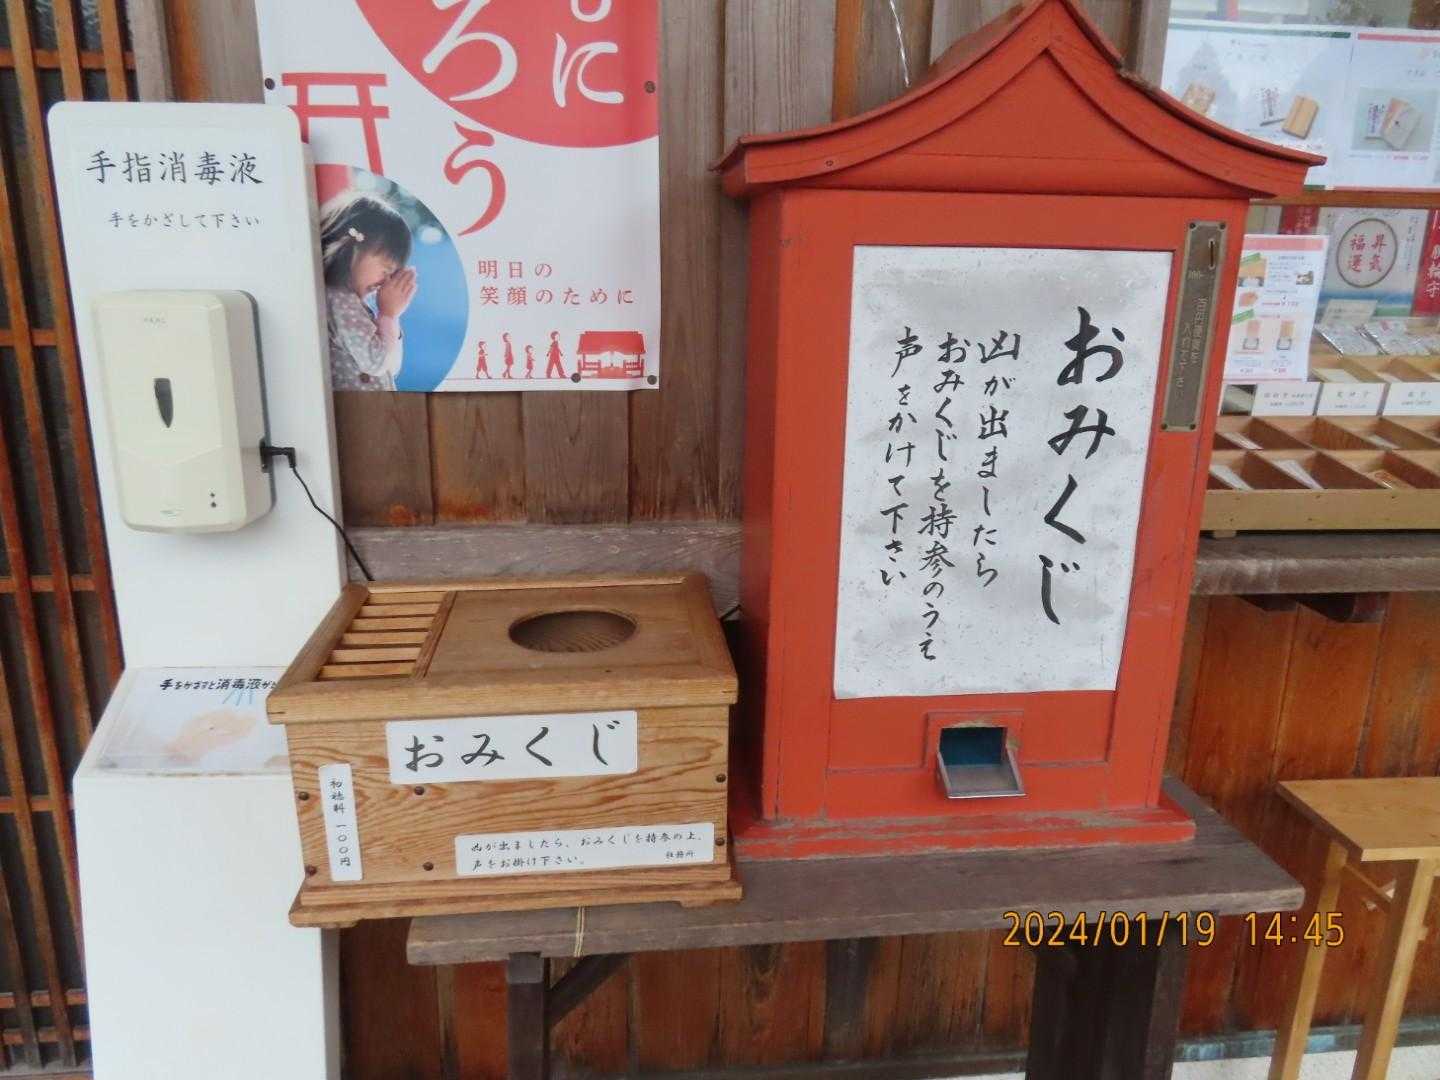 手指消毒液
手をかざして下さい
手をかざすと消毒液が
に
ろう
明日の
笑顔のために
おみくじ
初穂料 一〇〇円
凶が出ましたら、おみくじを持参の上、
声をお掛け下さい。
社務所
おみくじ
凶が出ましたら
おみくじを持参のうえ
声をかけて下さい
昇氣
福運
2024/01/19 14:45